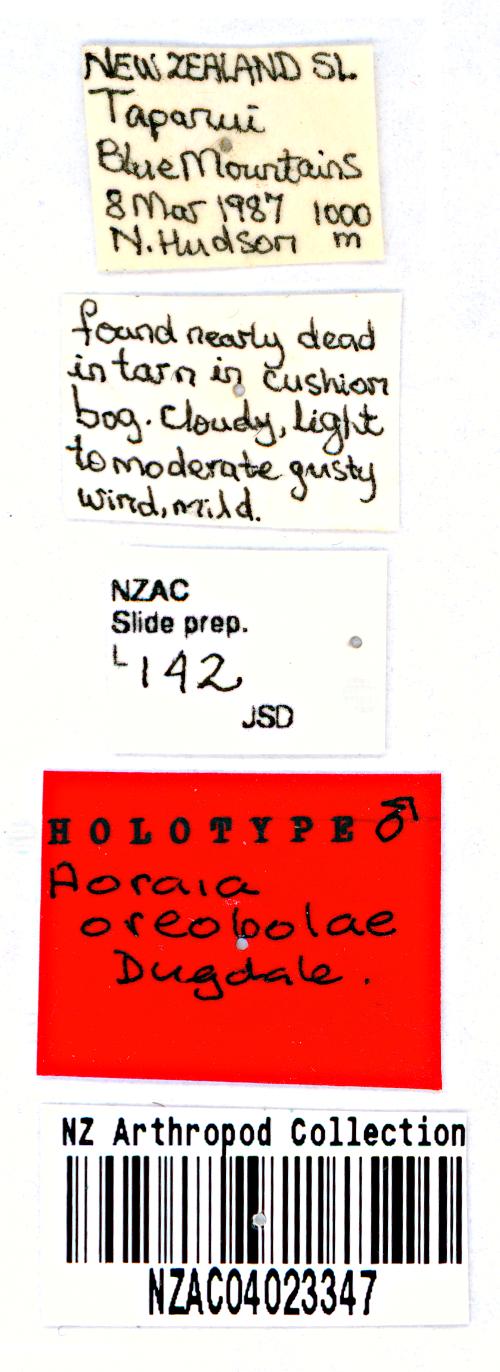 NEW ZEALAND SL
Tapanui
Blue Mountains
8 Mar 1987 1000
N. Hudson m
found nearly dead
in tarn in cushion
bog. Cloudy, light
to moderate gusty
wind, mild.
NZAC
Slide prep.
L142
JSD
HOLOTYPE ♂
Aoraia
oreobolae
Dugdale.
NZ Arthropod Collection
NZAC04023347